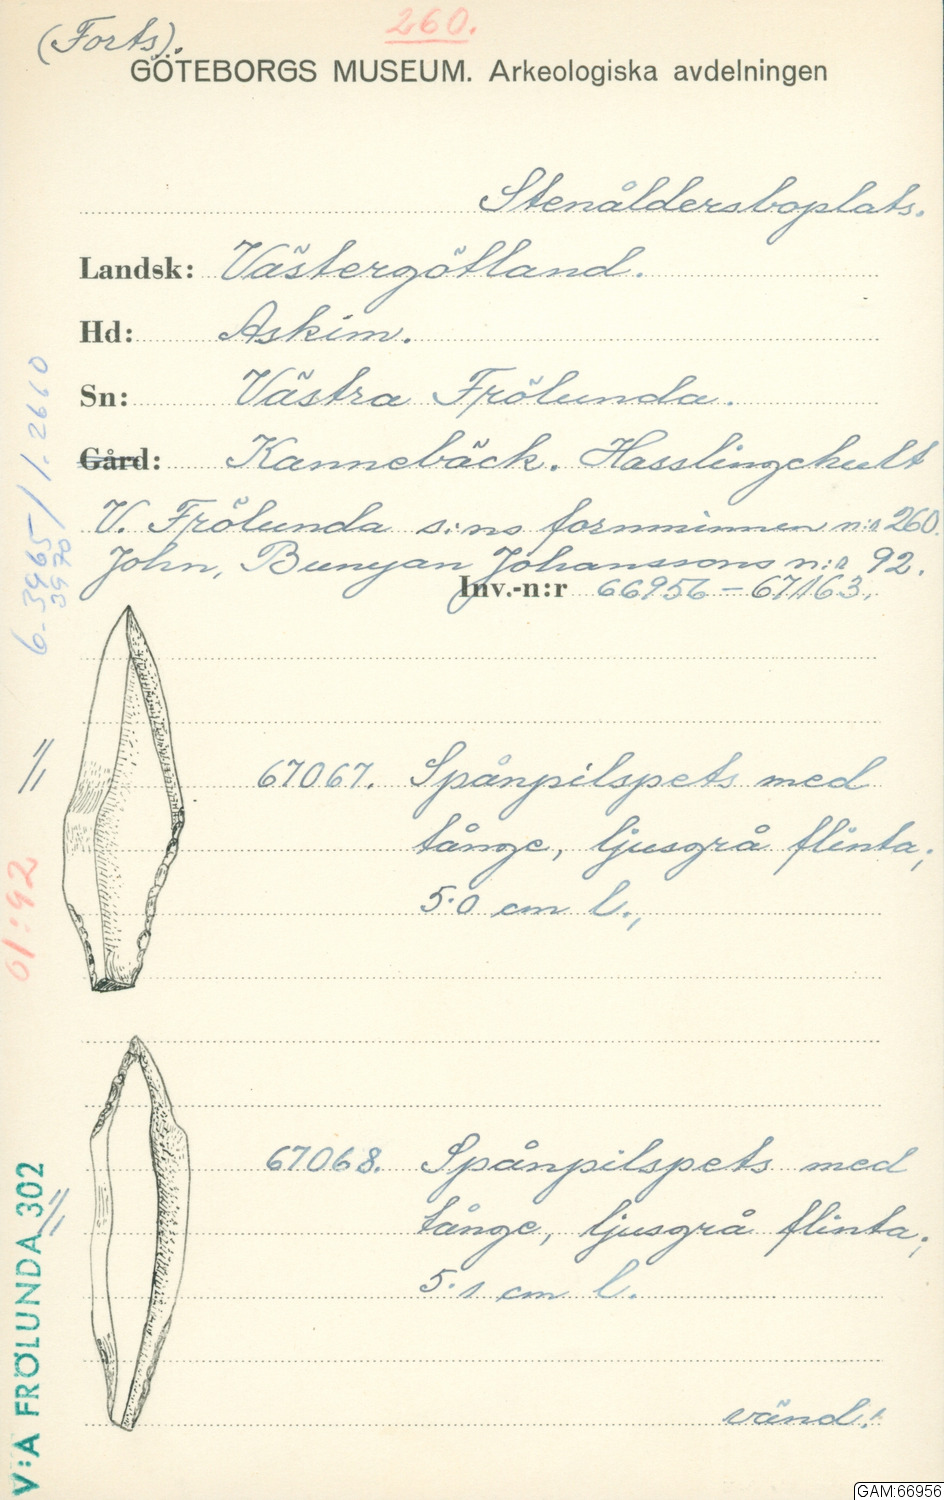 (Forts).
260.
GÖTEBORGS MUSEUM. Arkeologiska avdelningen
Stenåldersboplats.
Landsk: Västergötland.
Hd: Askim.
Sn: Västra Frölunda.
Gård: Kannebäck. Hasslingehult
V. Frölunda s:ns fornminnen n:r 260.
John, Bunyan Johanssons n:r 92.
Inv.-n:r 66956–67163.
67067. Spånpilspets med
tånge, ljusgrå flinta,
5.0 cm l.,
67068. Spånpilspets med
tånge, ljusgrå flinta,
5.1 cm l.
vänd!
6-3965/1.2660
3970
61:92
V:A FRÖLUNDA 302
GAM:66956